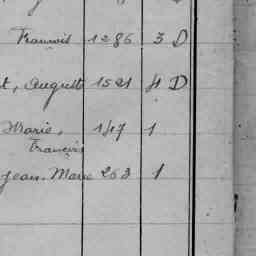 François 1286 3 D
t, Auguste 1521 4 D
Marie, 147 1
François
Jean-Marie 263 1